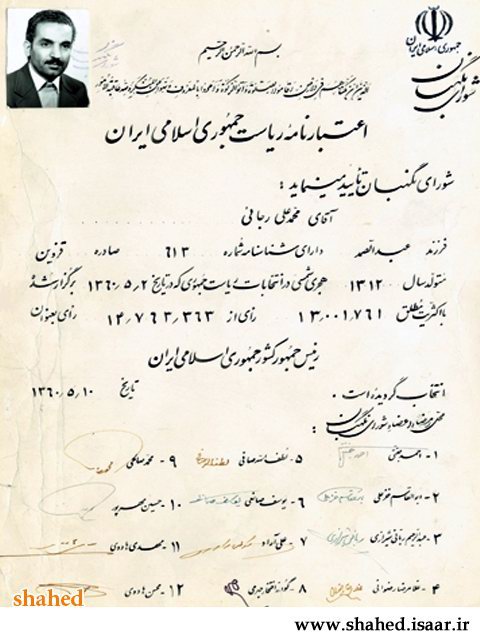 جمهوری اسلامی ایران
شورای نگهبان
بسم الله الرحمن الرحیم
اعتبارنامهٔ ریاست جمهوری اسلامی ایران
شورای نگهبان تأیید مینماید :
آقای محمدعلی رجائی
فرزند عبدالصمد دارای شناسنامه شماره ۶۱۳ صادره قزوین
متولد سال ۱۳۱۲ هجری شمسی در انتخابات ریاست جمهوری که در تاریخ ۱۳۶۰,۵,۲ برگزار شد
با اکثریت مطلق ۱۳,۰۰۱,۷۶۱ رأی از ۱۴,۷۶۳,۳۶۳ رأی بعنوان
رئیس جمهور کشور جمهوری اسلامی ایران
انتخاب گردیده است . تاریخ ۱۳۶۰,۵,۱۰
محل مهر و امضاء اعضاء شورای نگهبان :
۱ - احمد جنتی ۵ - لطف الله صافی ۹ - محمد صالحی
۲ - ابوالقاسم خزعلی ۶ - یوسف صانعی ۱۰ - حسین مهرپور
۳ - عبدالرحیم ربانی شیرازی ۷ - علی آراد ۱۱ - مهدی هادوی
۴ - غلامرضا رضوانی ۸ - گودرز افتخار جهرمی ۱۲ - محسن هادوی
shahed
www.shahed.isaar.ir